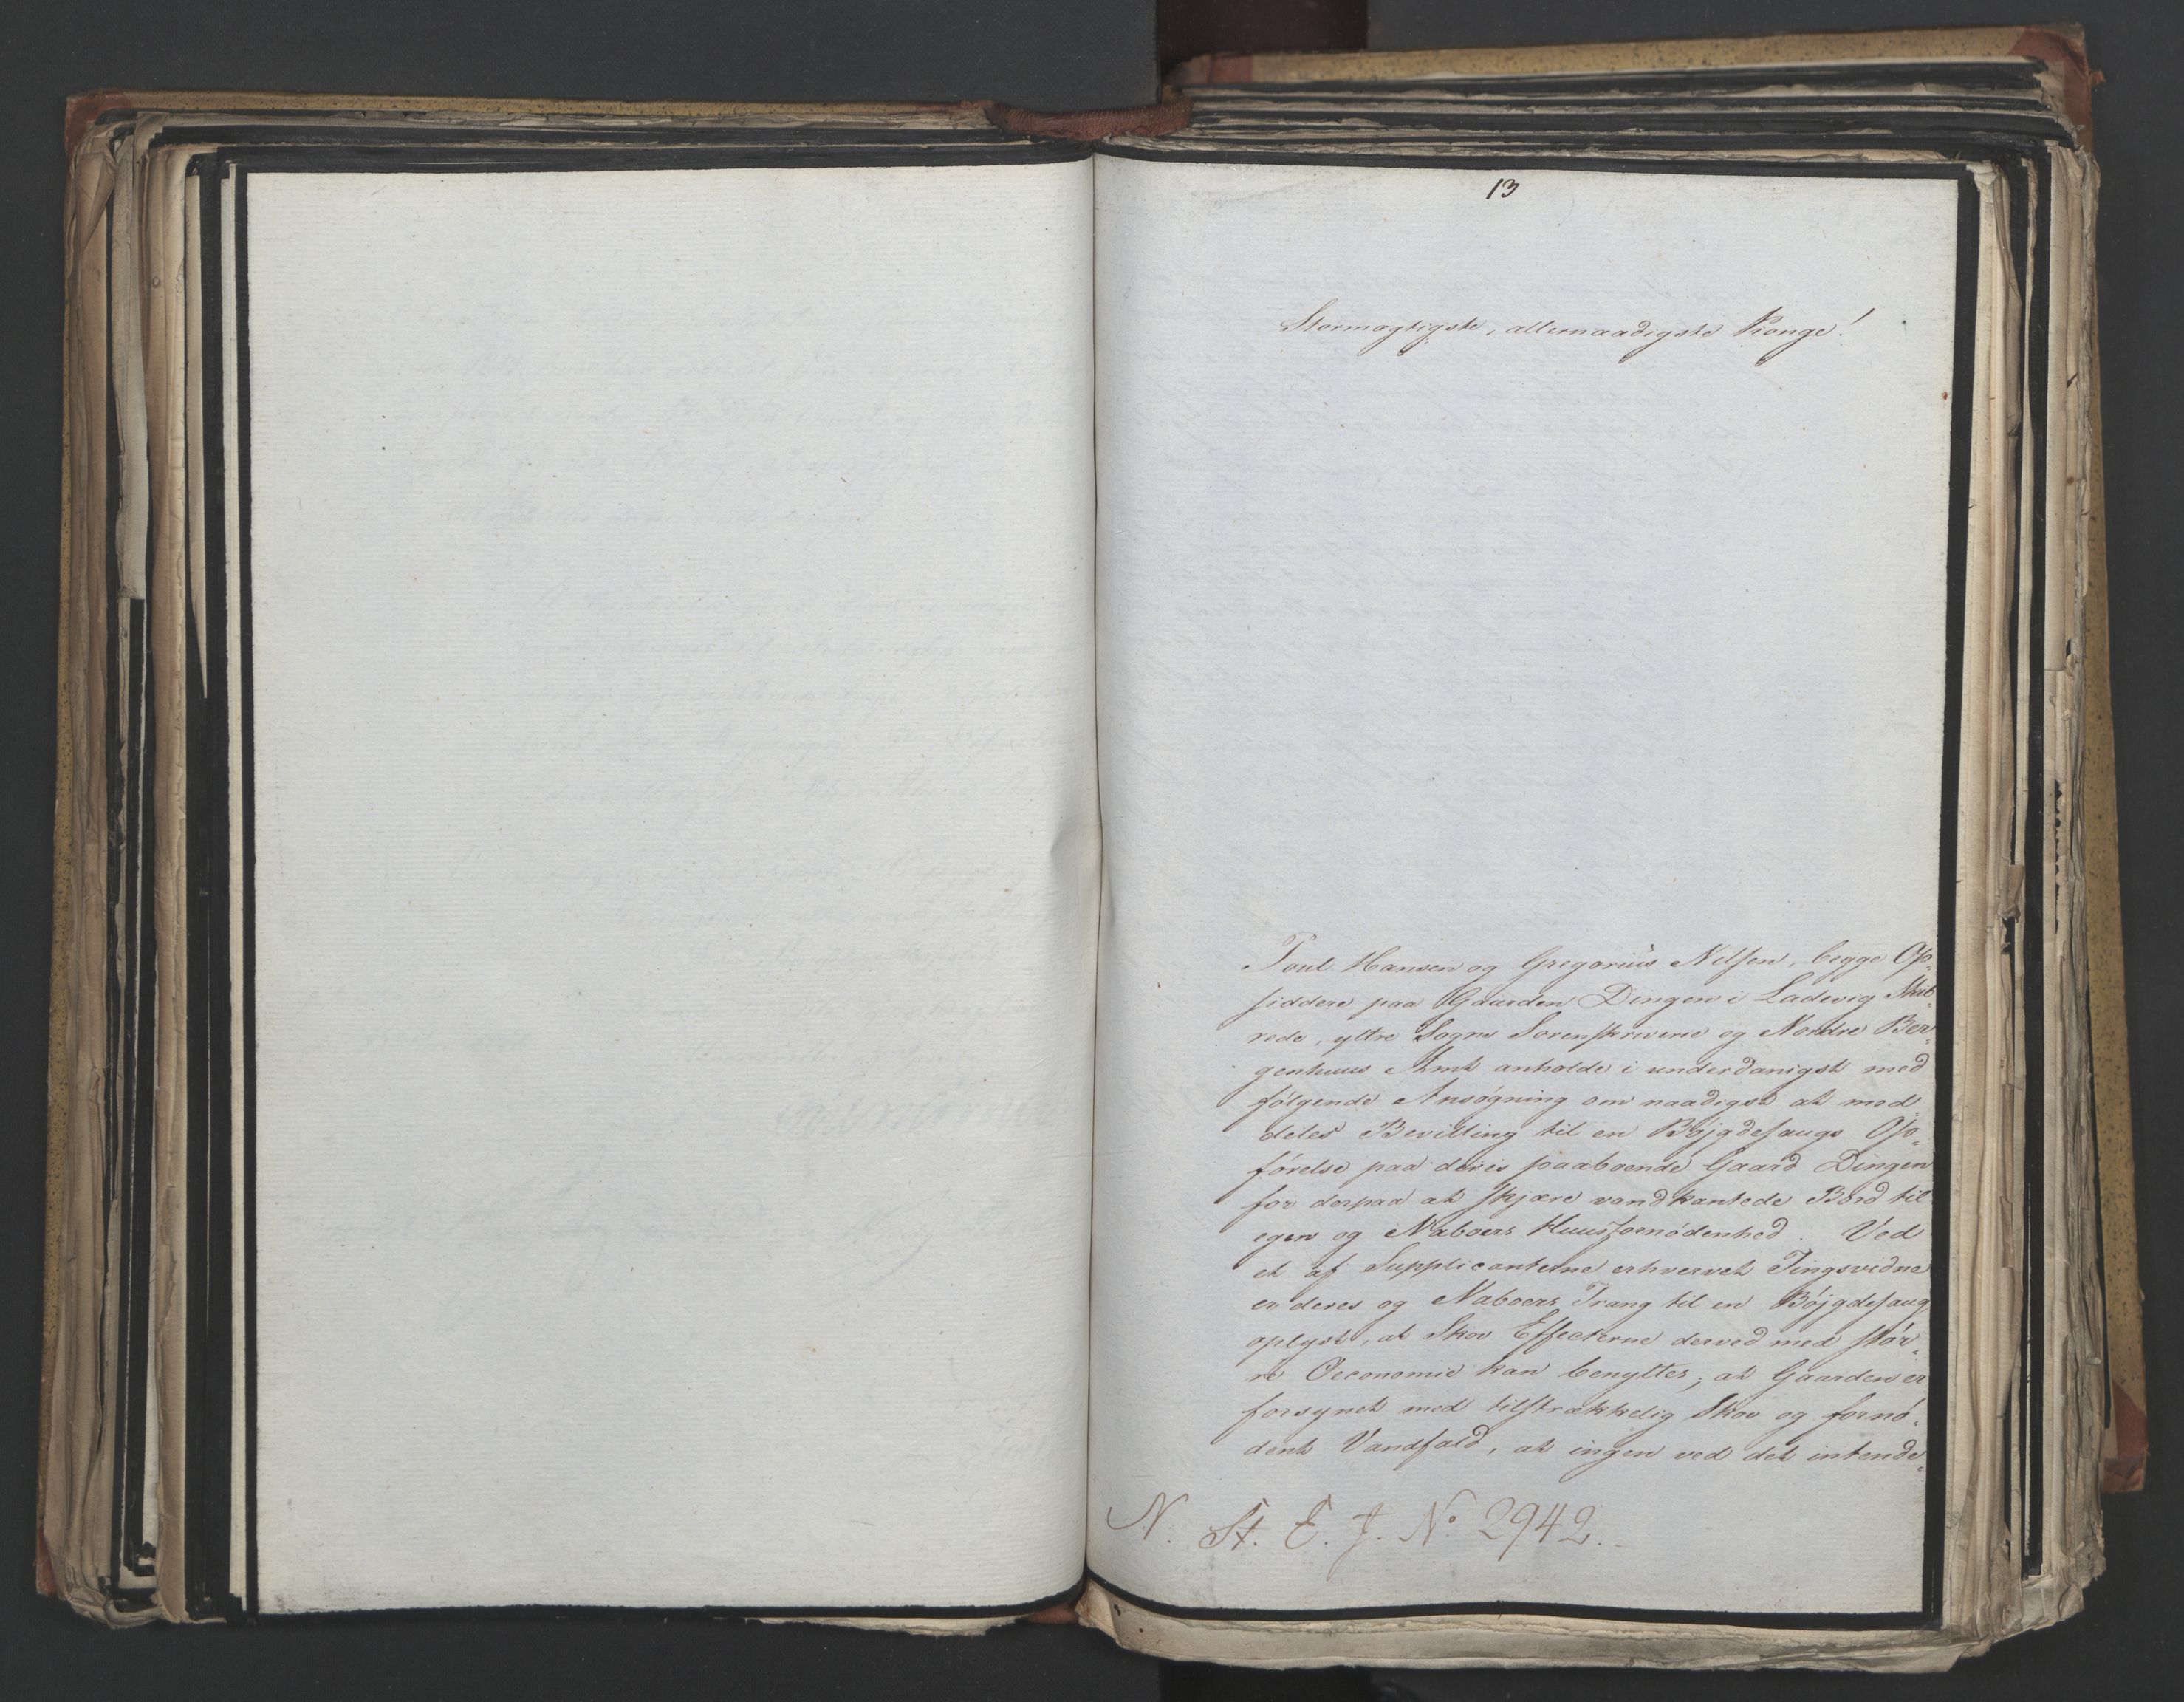 13
Stormægtigste, allernaadigste Konge!
Poul Hansen og Gregorius Nilsen, begge Op-
siddere paa Gaarden Dingen i Ladevig Skib-
rede, yttre Sogns Sorenskriverie og Nordre Ber-
genhuus Amt anholde i underdanigst med
følgende Ansøgning om naadigst at med-
deles Bevilling til en Bøjgdesaugs Op-
førelse paa deres paaboende Gaard Dingen
for derpaa at skjære vandkantede Bord til
egen og Naboers Huusfornødenhed. Ved
et af Supplicanterne erhvervet Tingsvidne
er deres og Naboers Trang til en Bøjgdesaug
oplyst, at Skov Effecterne derved med stør-
re Oeconomie kan benyttes; at Gaarden er
forsynet med tilstrækkelig Skov og fornø-
dent Vandfald, at ingen ved det intende-
N. St. E. J. No 2942.